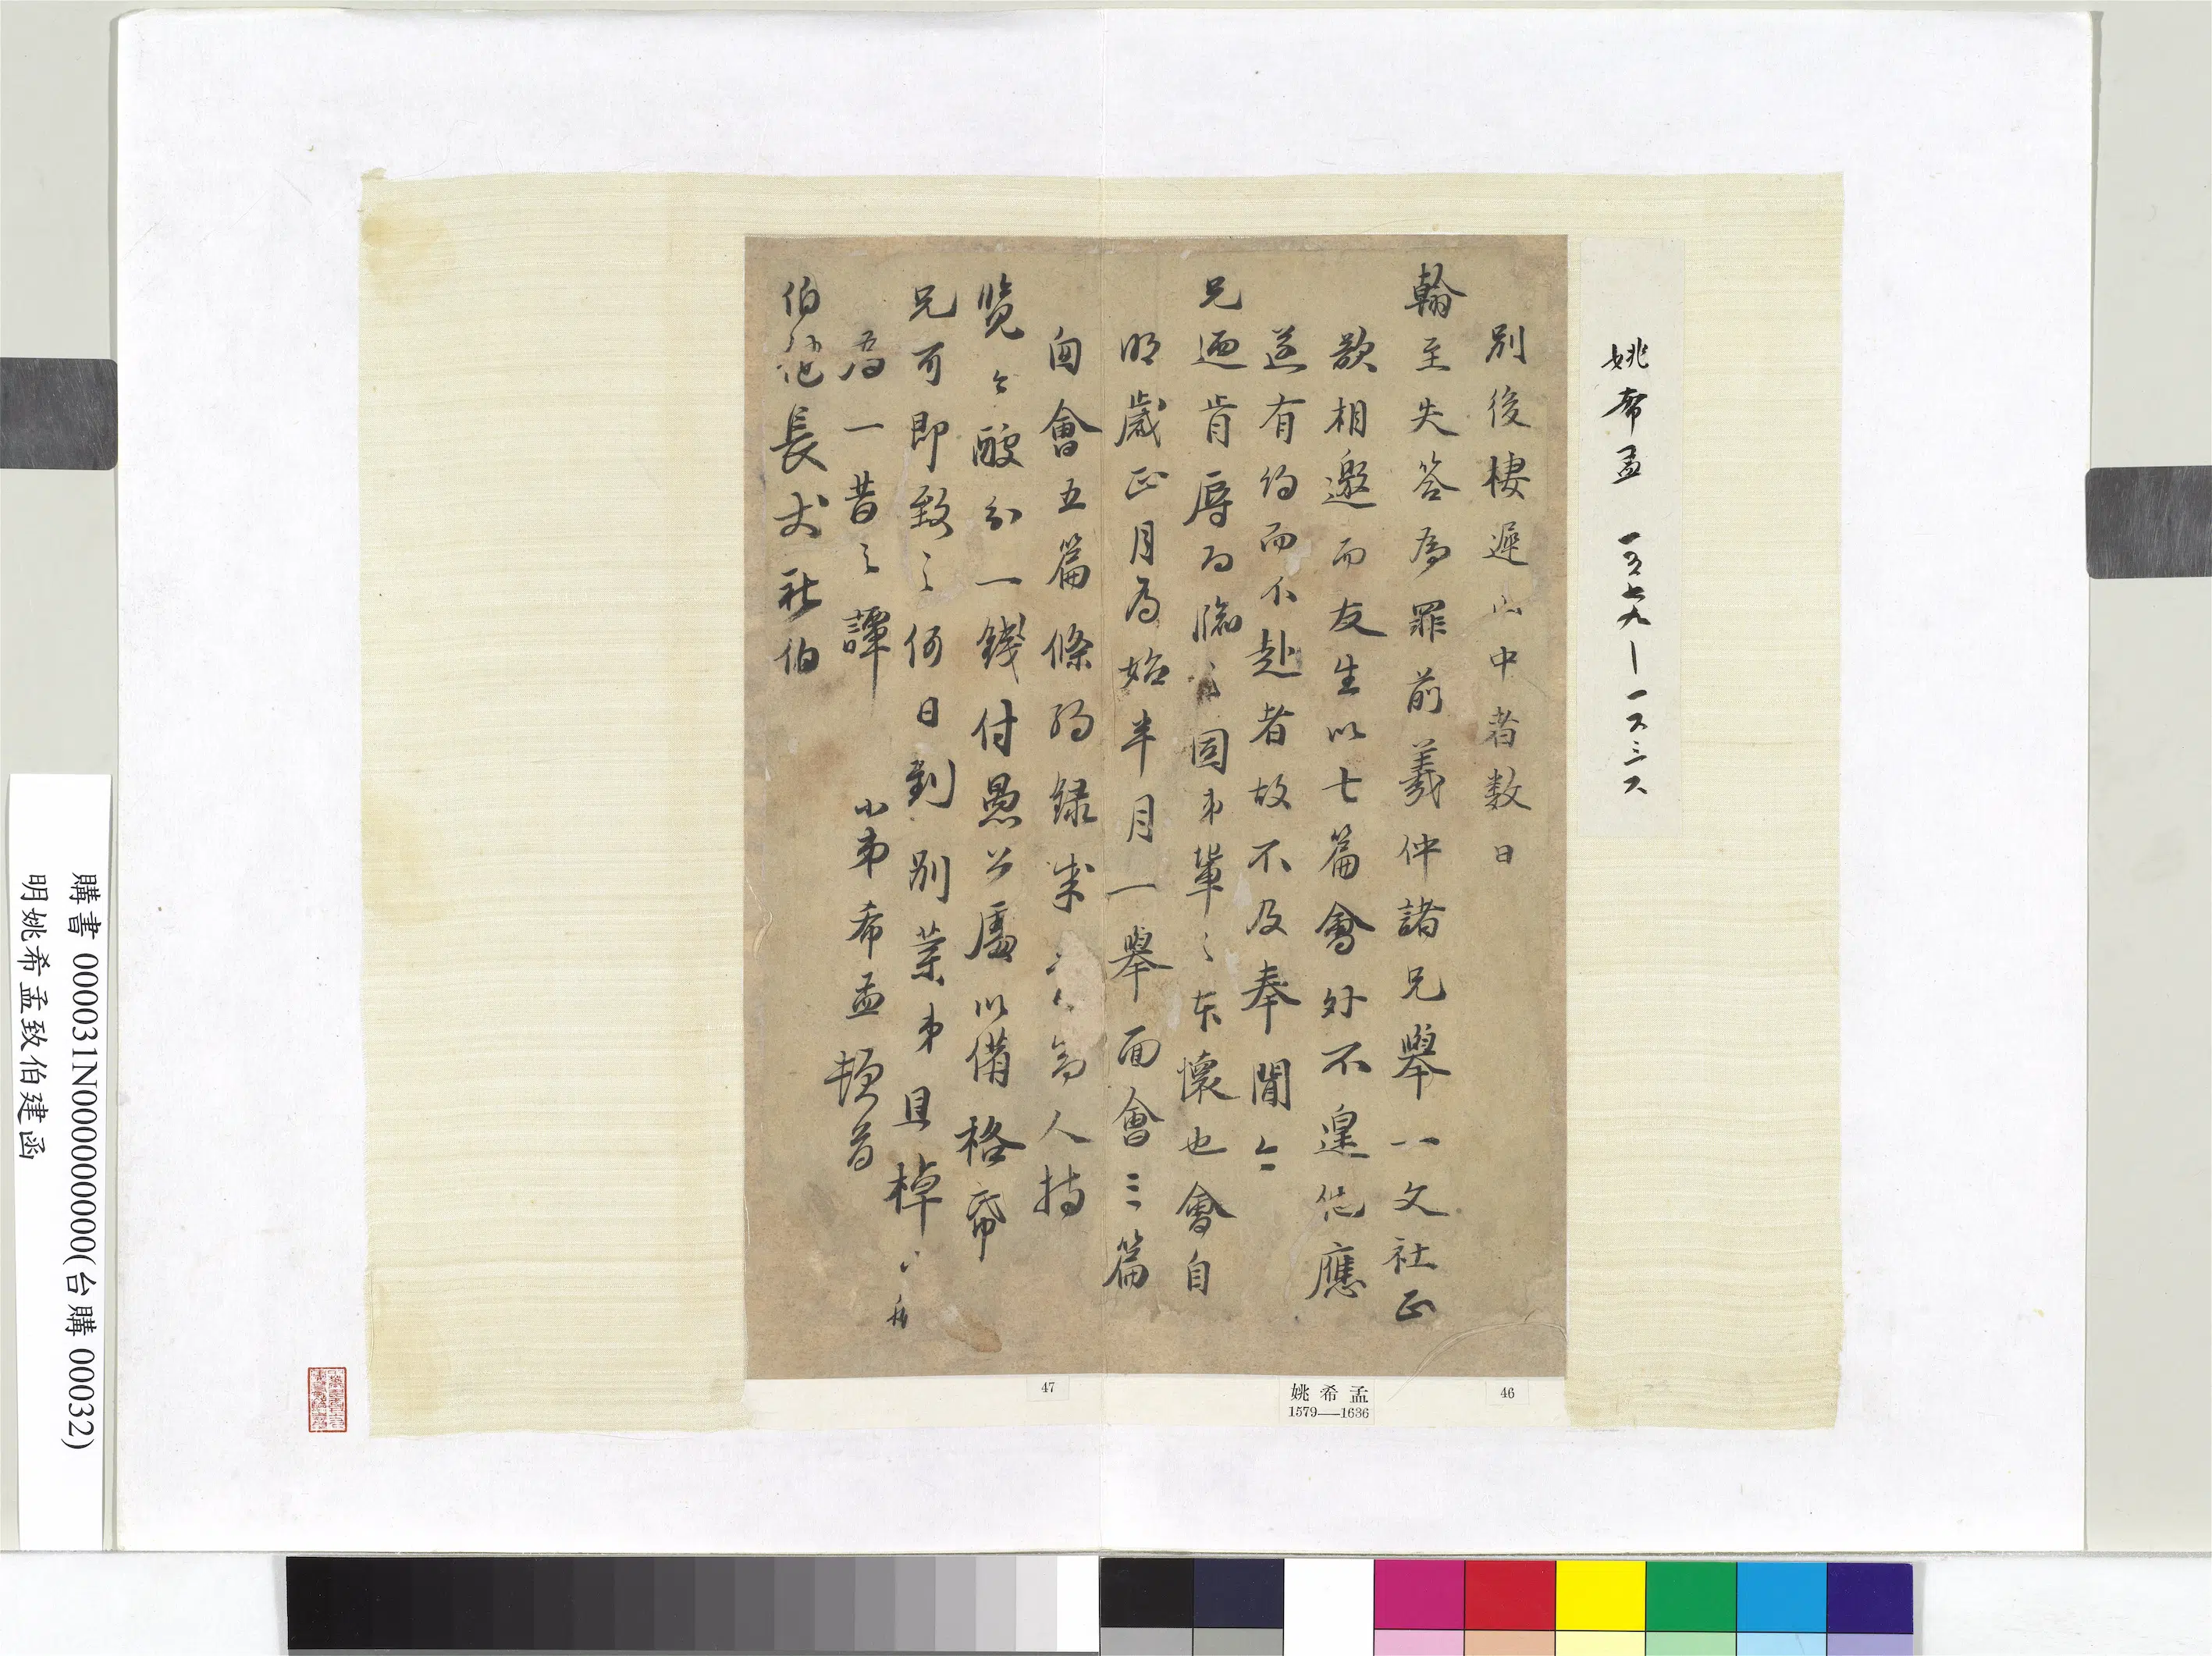 姚希孟 一五七九—一六三六
別後棲遲山中者数日
翰至失答為罪前羲仲諸兄舉一文社正
欲相邀而友生以七篇會外不遑他應
遂有約而不赴者故不及奉聞今
兄迺肯辱而臨之固弟輩之本懷也會自
明歲正月為始半月一舉面會三篇
窗會五篇條約録来 人持
覽今醵分一錢付愚公處以備格帋
兄可即致之何日到別業弟且棹
為一昔之譚
小弟希孟頓首
伯 長丈社伯
46
姚希孟
1579—1636
47
購書 000031N000000000(台購 00032)
明姚希孟致伯建函